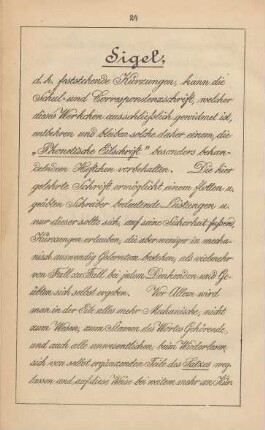 24
Sigel,
d. h. feststehende Kürzungen, kann die
Schul- und Correspondenzschrift, welcher
dieses Werkchen ausschließlich gewidmet ist,
entbehren und bleiben solche daher einem, die
„Phonetische Eilschrift" besonders behan-
delndem Heftchen vorbehalten. Die hier
gelehrte Schrift ermöglicht einem flotten u.
geübten Schreiber bedeutende Leistungen u.
nur dieser sollte sich, auf seine Sicherheit fußend,
Kürzungen erlauben, die aber weniger in mecha-
nisch auswendig Gelerntem bestehen, als vielmehr
von Fall zu Fall bei jedem Denkenden und Ge-
übten sich selbst ergeben. Vor Allem wird
man in der Eile alles mehr Mechanische, nicht
zum Wesen, zum Stamm des Wortes Gehörende,
und auch alle unwesentlichen, beim Wiederlesen
sich von selbst ergänzenden Teile des Satzes weg-
lassen und auf diese Weise bei weitem mehr an Kür-